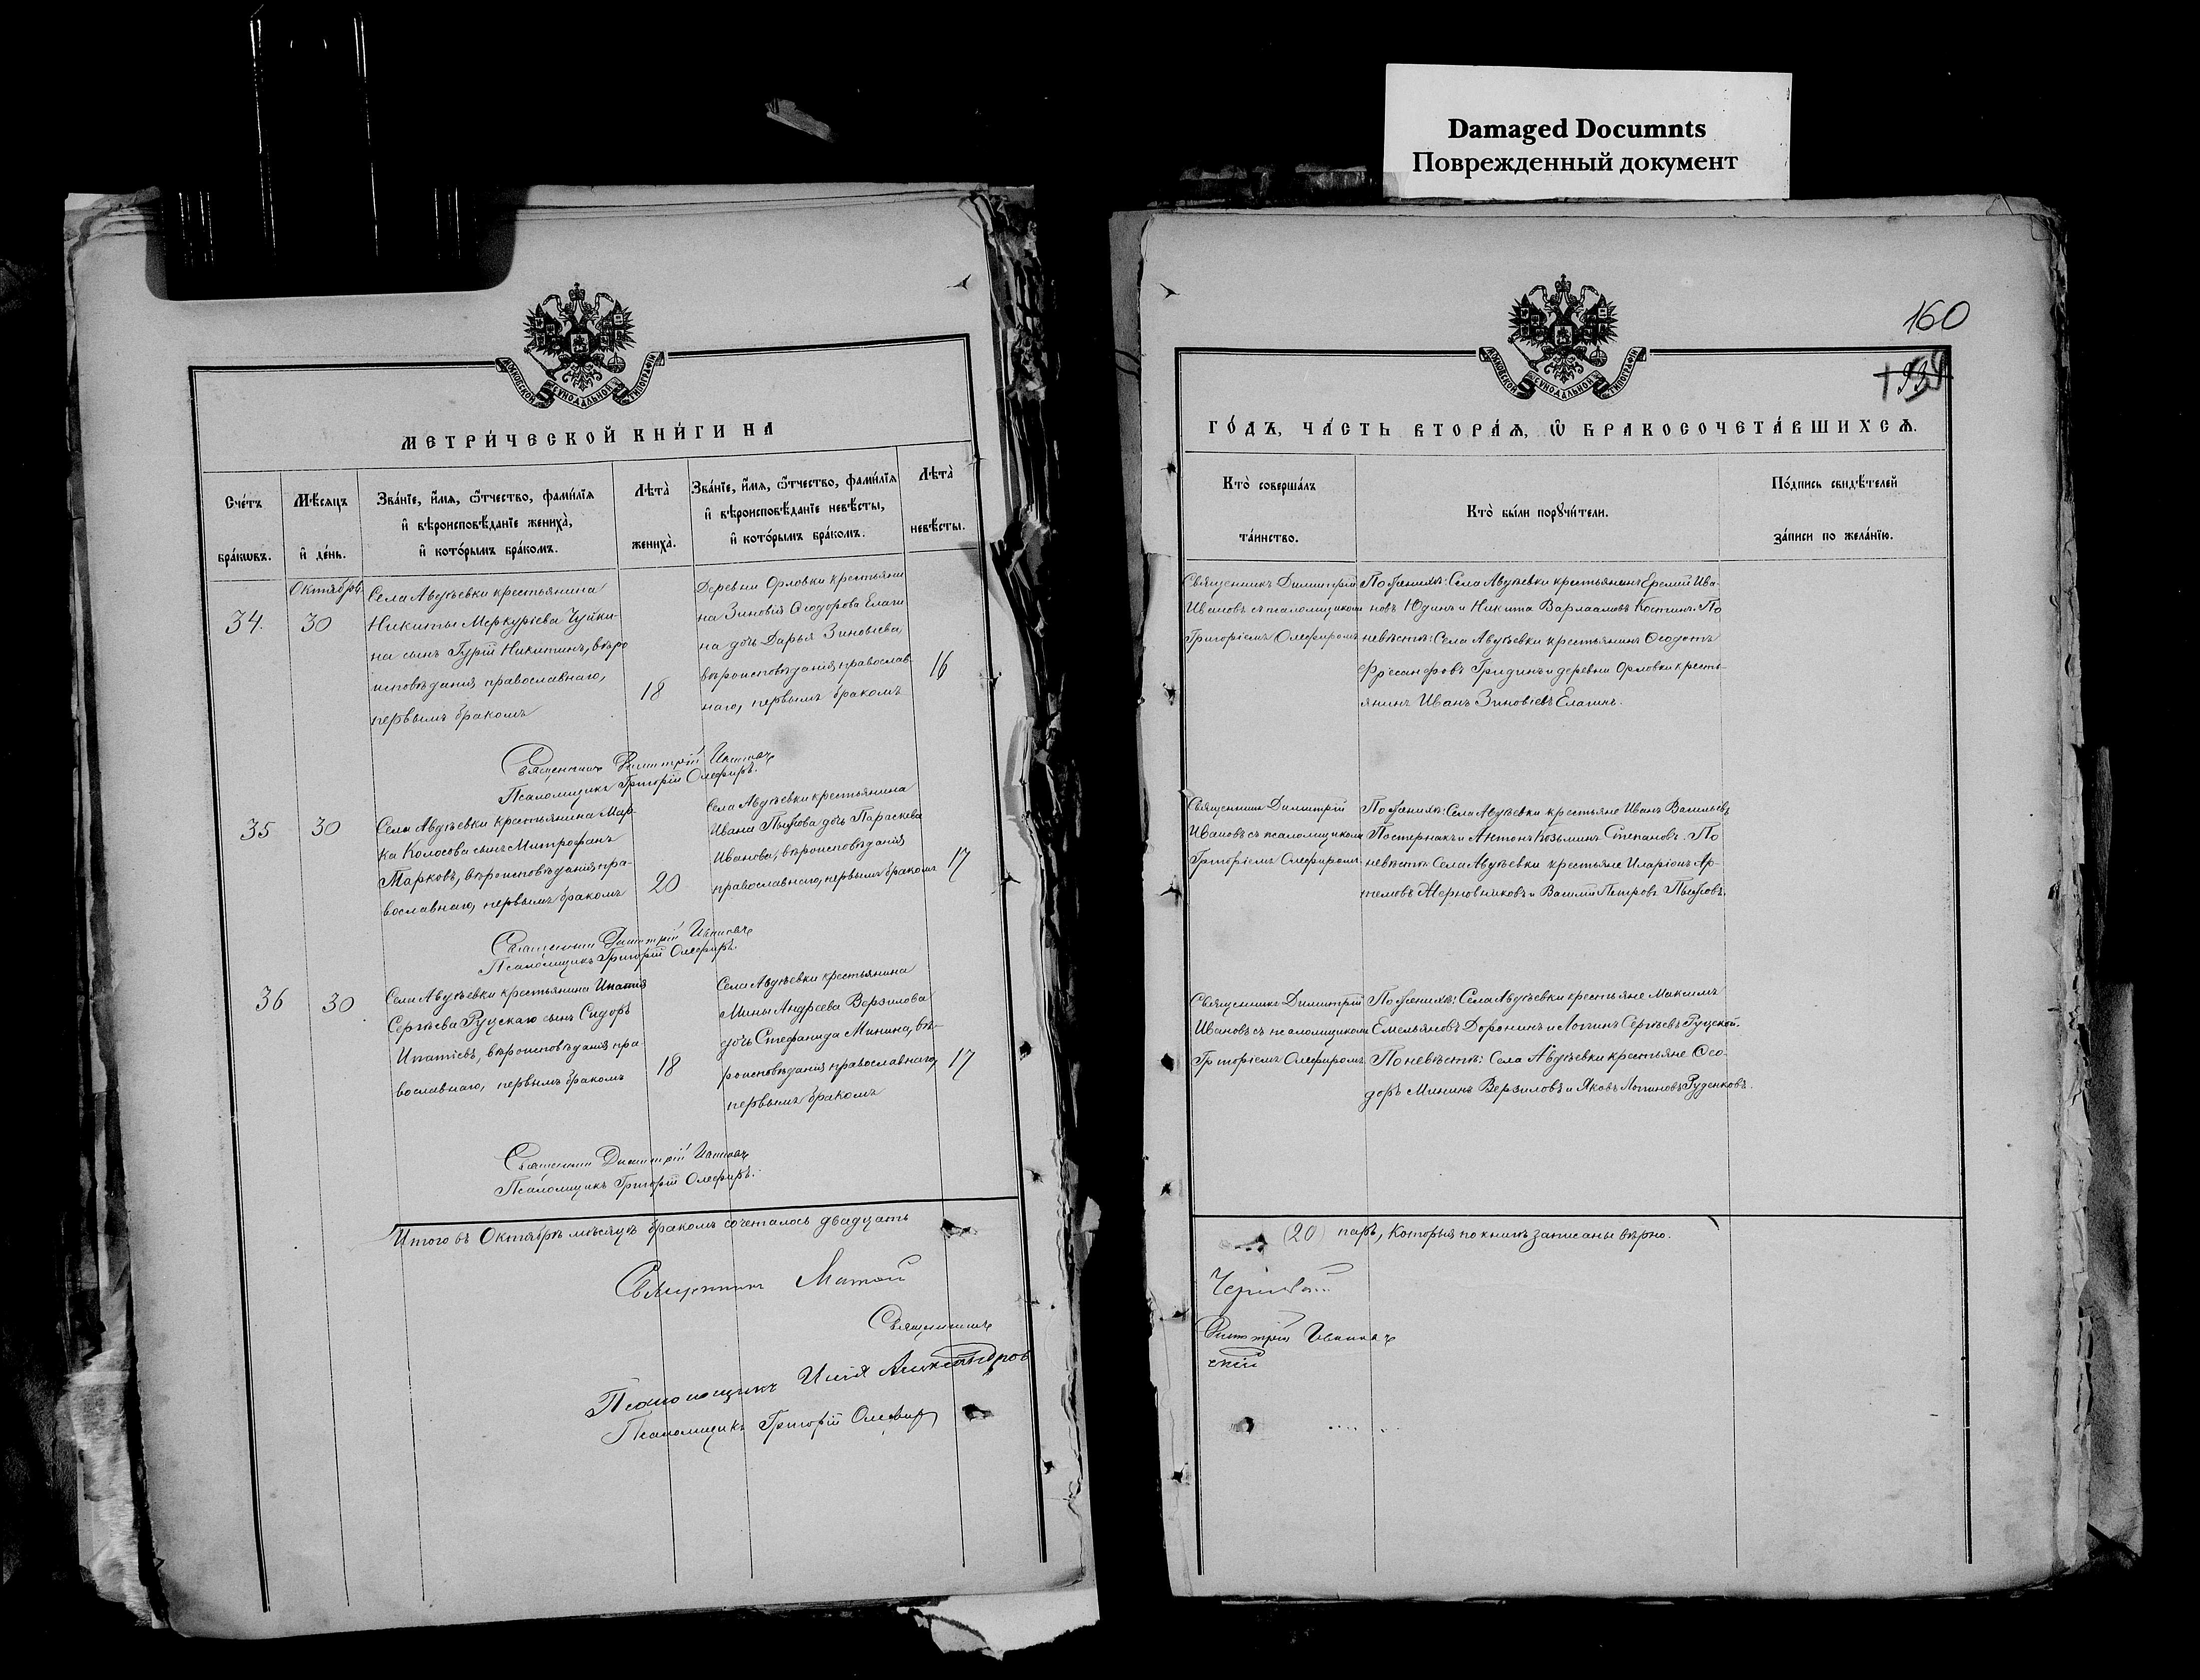 Damaged Documnts
Поврежденный документ
МОСКОВСКОЙ СУНОДАЛЬНОЙ ТИПОГРАФІИ
МЕТРИ́ЧЕСКОЙ КНИ́ГИ НА
Сче́тъ бра́кѡвъ.
Мѣ́сѧцъ и҆ де́нь.
Зва́нїе, и҆́мѧ, ѻ҆́тчество, фамѝлїѧ
и҆ вѣроисповѣ́данїе жениха̀,
и҆ кото́рымъ бра́комъ.
Лѣта̀ жениха̀.
Зва́нїе, и҆́мѧ, ѻ҆́тчество, фамѝлїѧ
и҆ вѣроисповѣ́данїе невѣ́сты,
и҆ кото́рымъ бра́комъ.
Лѣта̀ невѣ́сты.
Октябрь
34.
30
Села Авдѣевки крестьянина
Никиты Меркуріева Чуйки-
на сынъ Гурій Никитинъ, вѣро
исповѣданія православнаго,
первымъ бракомъ
18
Деревни Орловки крестьяни
на Зиновія Ѳеодорова Елаги
на дочь Дарья Зиновіева,
вѣроисповѣданія православ-
наго, первымъ бракомъ
16
Священникъ Димитрій Ивановъ
Псаломщикъ Григорій Олефиръ.
35
30
Села Авдѣевки крестьянина Мар-
ка Колосова сынъ Митрофанъ
Марковъ, вѣроисповѣданія пра-
вославнаго, первымъ бракомъ
20
Села Авдѣевки крестьянина
Ивана дочь Параскева
Иванова, вѣроисповѣданія
православнаго, первымъ бракомъ
17
Священникъ Димитрій Ивановъ
Псаломщикъ Григорій Олефиръ.
36
30
Села Авдѣевки крестьянина Ипатія
Сергѣева Руцскаго сынъ Сидоръ
Ипатіевъ, вѣроисповѣданія пра-
вославнаго, первымъ бракомъ
18
Села Авдѣевки крестьянина
Мины Андреева Верзилова
дочь Стефанида Минина, вѣ-
роисповѣданія православнаго,
первымъ бракомъ
17
Священникъ Димитрій Ивановъ
Псаломщикъ Григорій Олефиръ.
Итого въ Октябрѣ мѣсяцѣ бракомъ сочеталось двадцать
Священникъ
Священникъ
Псаломщикъ Илія Александров
Псаломщикъ Григорій Олефир
160
МОСКОВСКОЙ СУНОДАЛЬНОЙ ТИПОГРАФІИ
ГО́ДЪ, ЧА́СТЬ ВТОРА́Ѧ, Ѽ БРАКОСОЧЕТА́ВШИХСѦ.
Кто̀ соверша́лъ
та́инство.
Кто̀ бы́ли порꙋчи́тели.
По́дпись свидѣ́телей
за́писи по жела́нїю.
Священникъ Димитрій
Ивановъ съ псаломщикомъ
Григоріемъ Олефиромъ
По женихѣ: Села Авдѣевки крестьянинъ Еремій Ива-
новъ Юдинъ и Никита Варлаамовъ Костинъ. По
невѣстѣ: Села Авдѣевки крестьянинъ Ѳеодотъ
Гридинъ и деревни Орловки кресть-
янинъ Иванъ Зиновіевъ Елагинъ.
Священникъ Димитрій
Ивановъ съ псаломщикомъ
Григоріемъ Олефиромъ
По женихѣ: Села Авдѣевки крестьяне Иванъ Васильевъ
Постернакъ и Антонъ Козьминъ Степановъ. По
невѣстѣ: Села Авдѣевки крестьяне Иларіонъ Ар-
темовъ и Василій Петровъ
Священникъ Димитрій
Ивановъ съ псаломщикомъ
Григоріемъ Олефиромъ
По женихѣ: Села Авдѣевки крестьяне Максимъ
Емельяновъ Доронинъ и Логинъ Сергѣевъ Руцской.
По невѣстѣ: Села Авдѣевки крестьяне Ѳео-
доръ Мининъ Верзиловъ и Яковъ Логиновъ Руденковъ.
(20) паръ, которыя по книгѣ записаны вѣрно.
Димитрій Ивановъ
скій